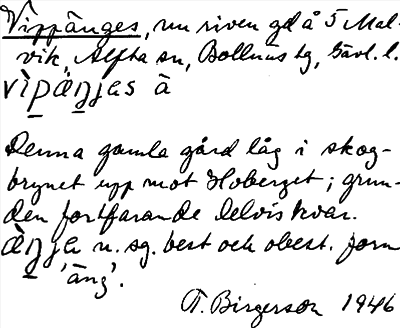 Vippänges, nu riven gd å 5 Mal-
vik, Alfta sn, Bollnäs tg, Gävl. l.
vìpäŋjes à
Denna gamla gård låg i skog-
brynet upp mot Hoberget; grun-
den fortfarande delvis kvar.
äŋja n. sg. best och obest. form
'äng'.
T. Birgerson 1946